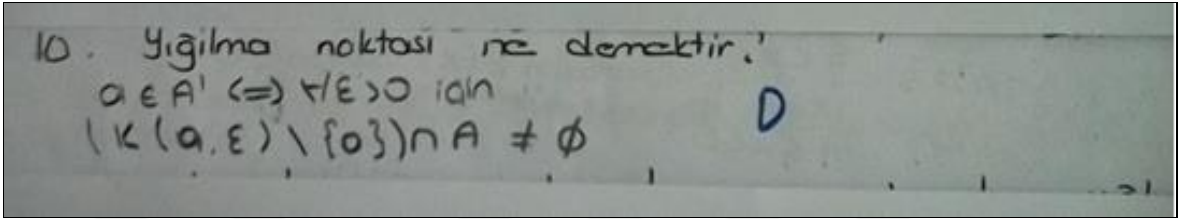 10. Yığılma noktası ne demektir?
a ∈ A' <=> ∀ε>0 için
(K(a,ε) \ {a}) ∩ A ≠ ∅
D